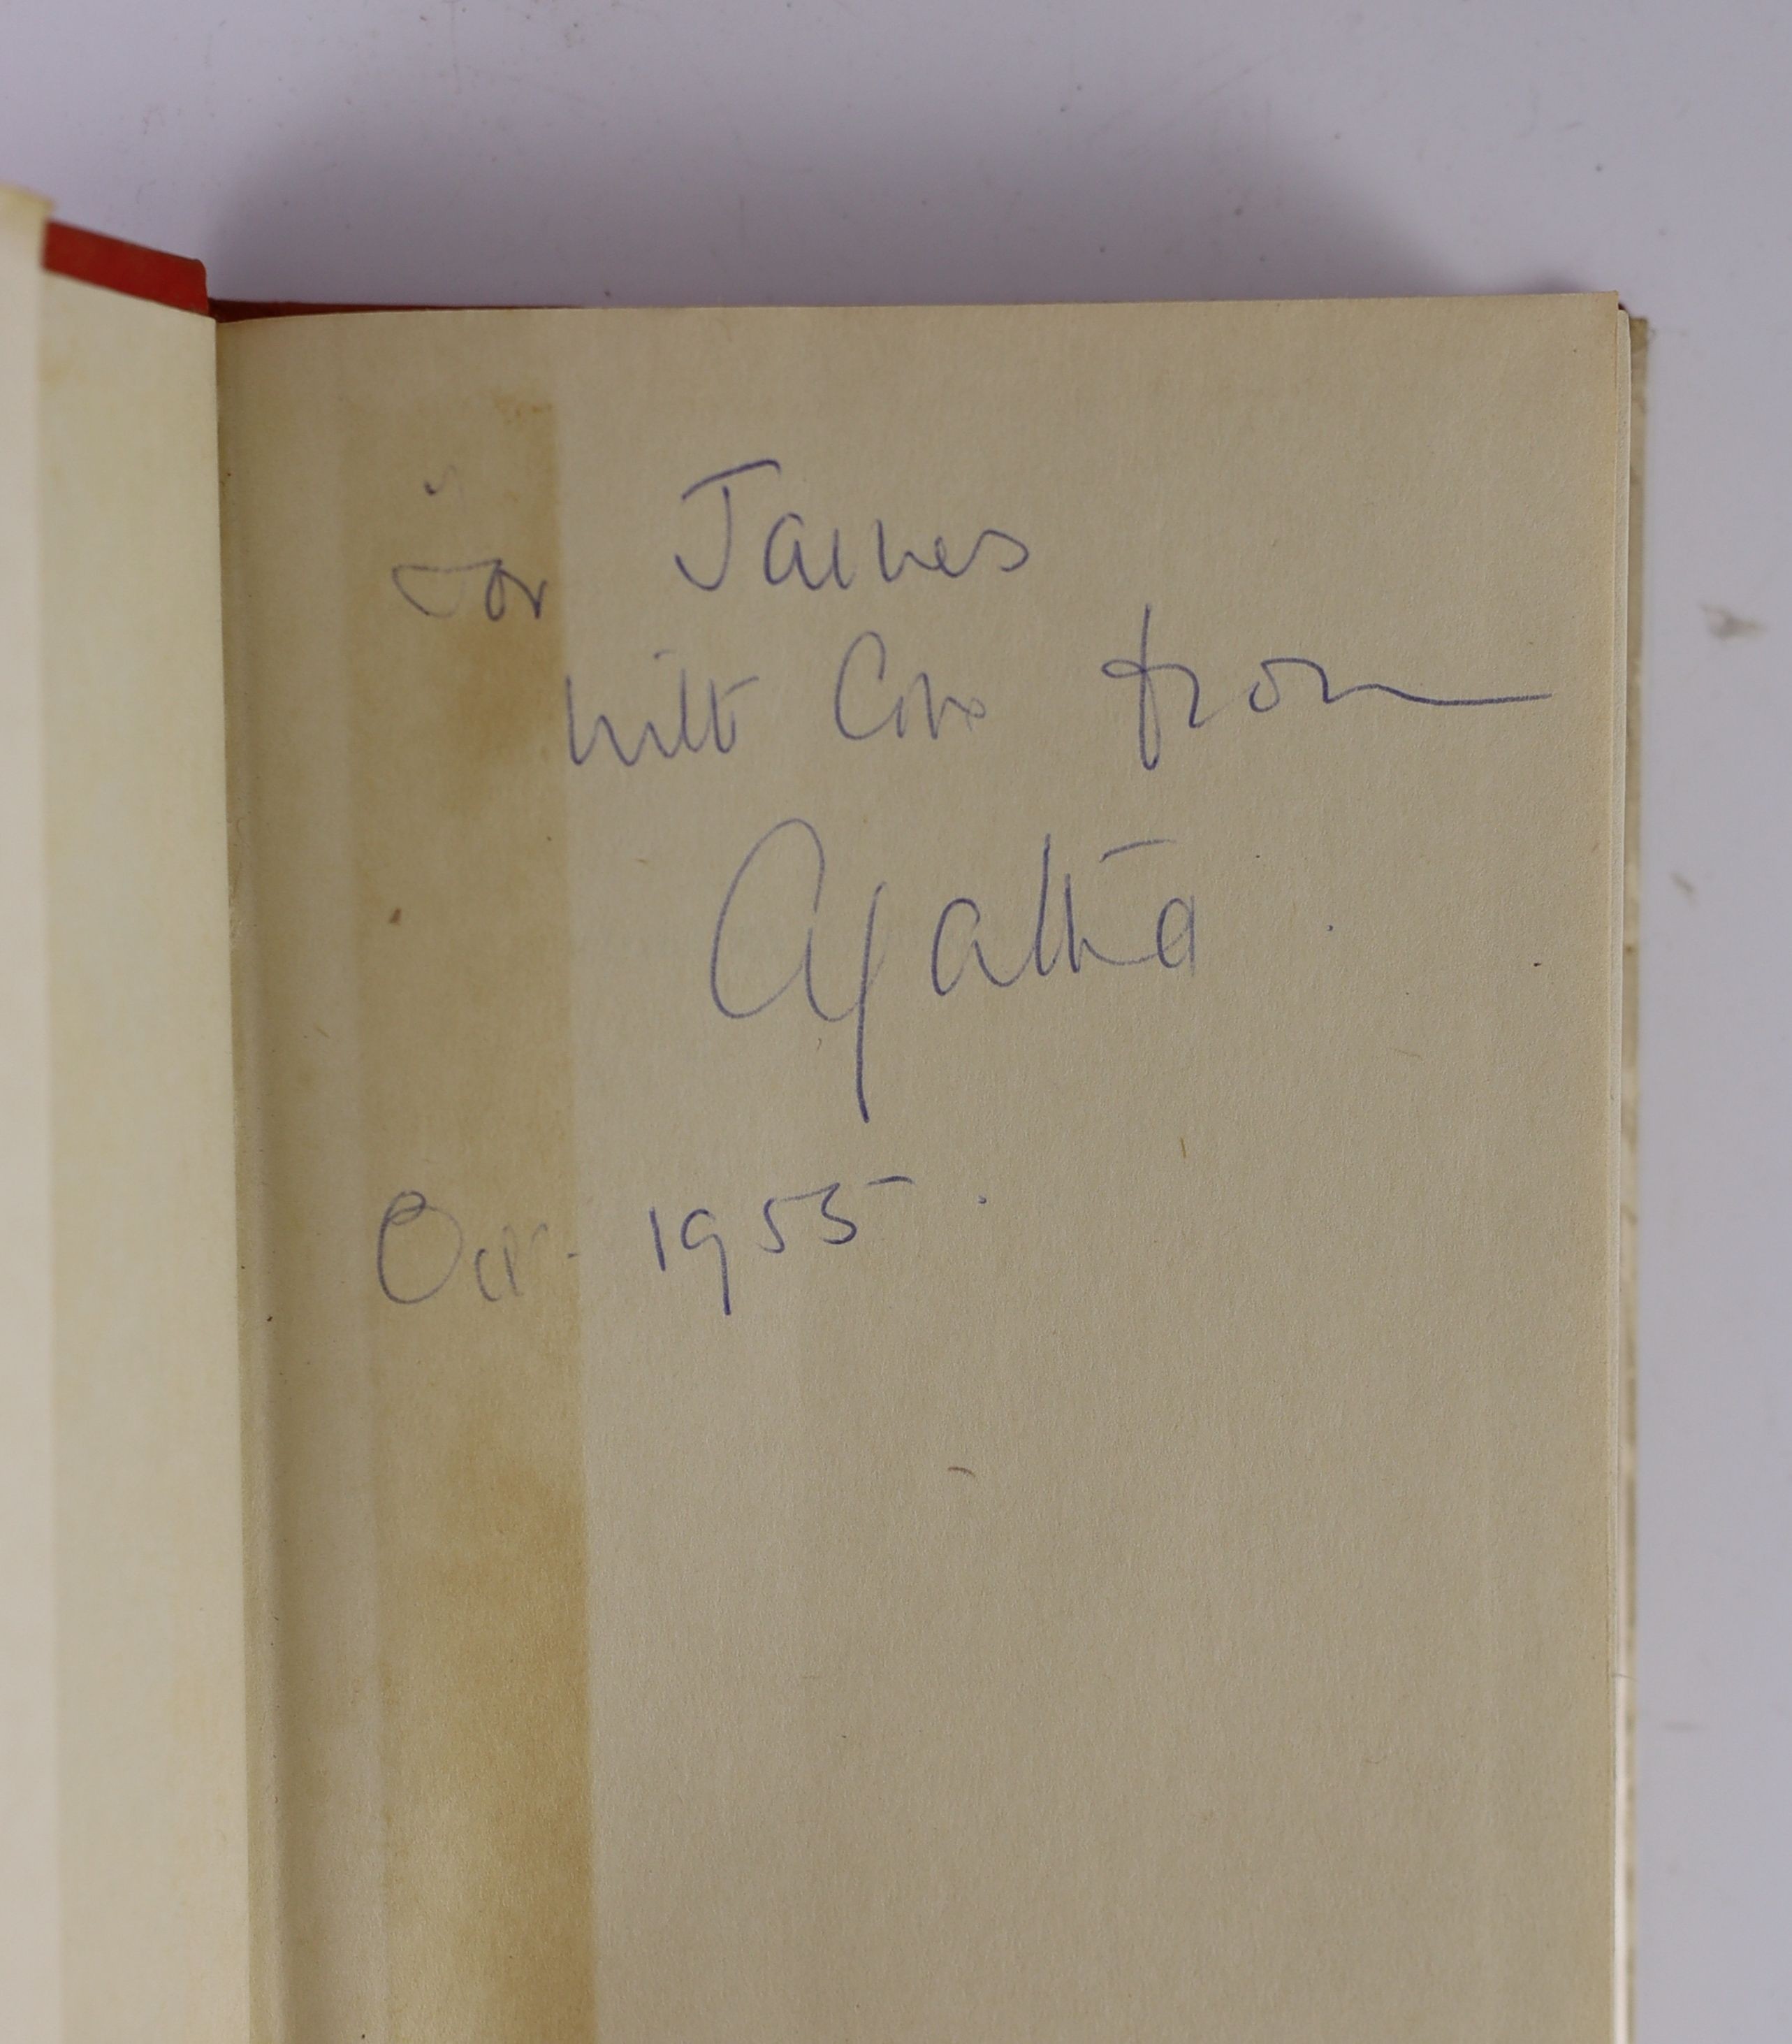 For James
with love from
Agatha
Oct. 1955.